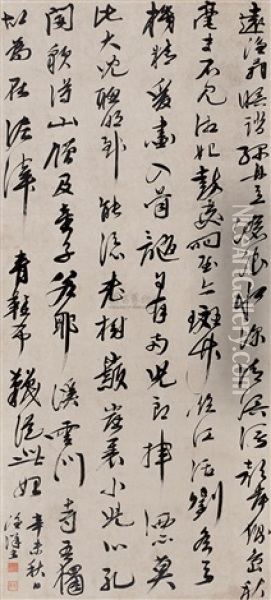 遠漁翁暝踏孤舟立滄浪水深清溟闊欹岸側島秋
毫末不見湘妃鼓瑟時至今斑竹臨江活劉侯天
機精愛畫入骨髓自有两兒郎揮洒莫
比大兒聰明到能添老樹巔崖裏小兒心孔
開貌得山僧及童子若耶溪雲門寺吾獨
胡為在泥滓青鞋布襪從此始
辛未秋日